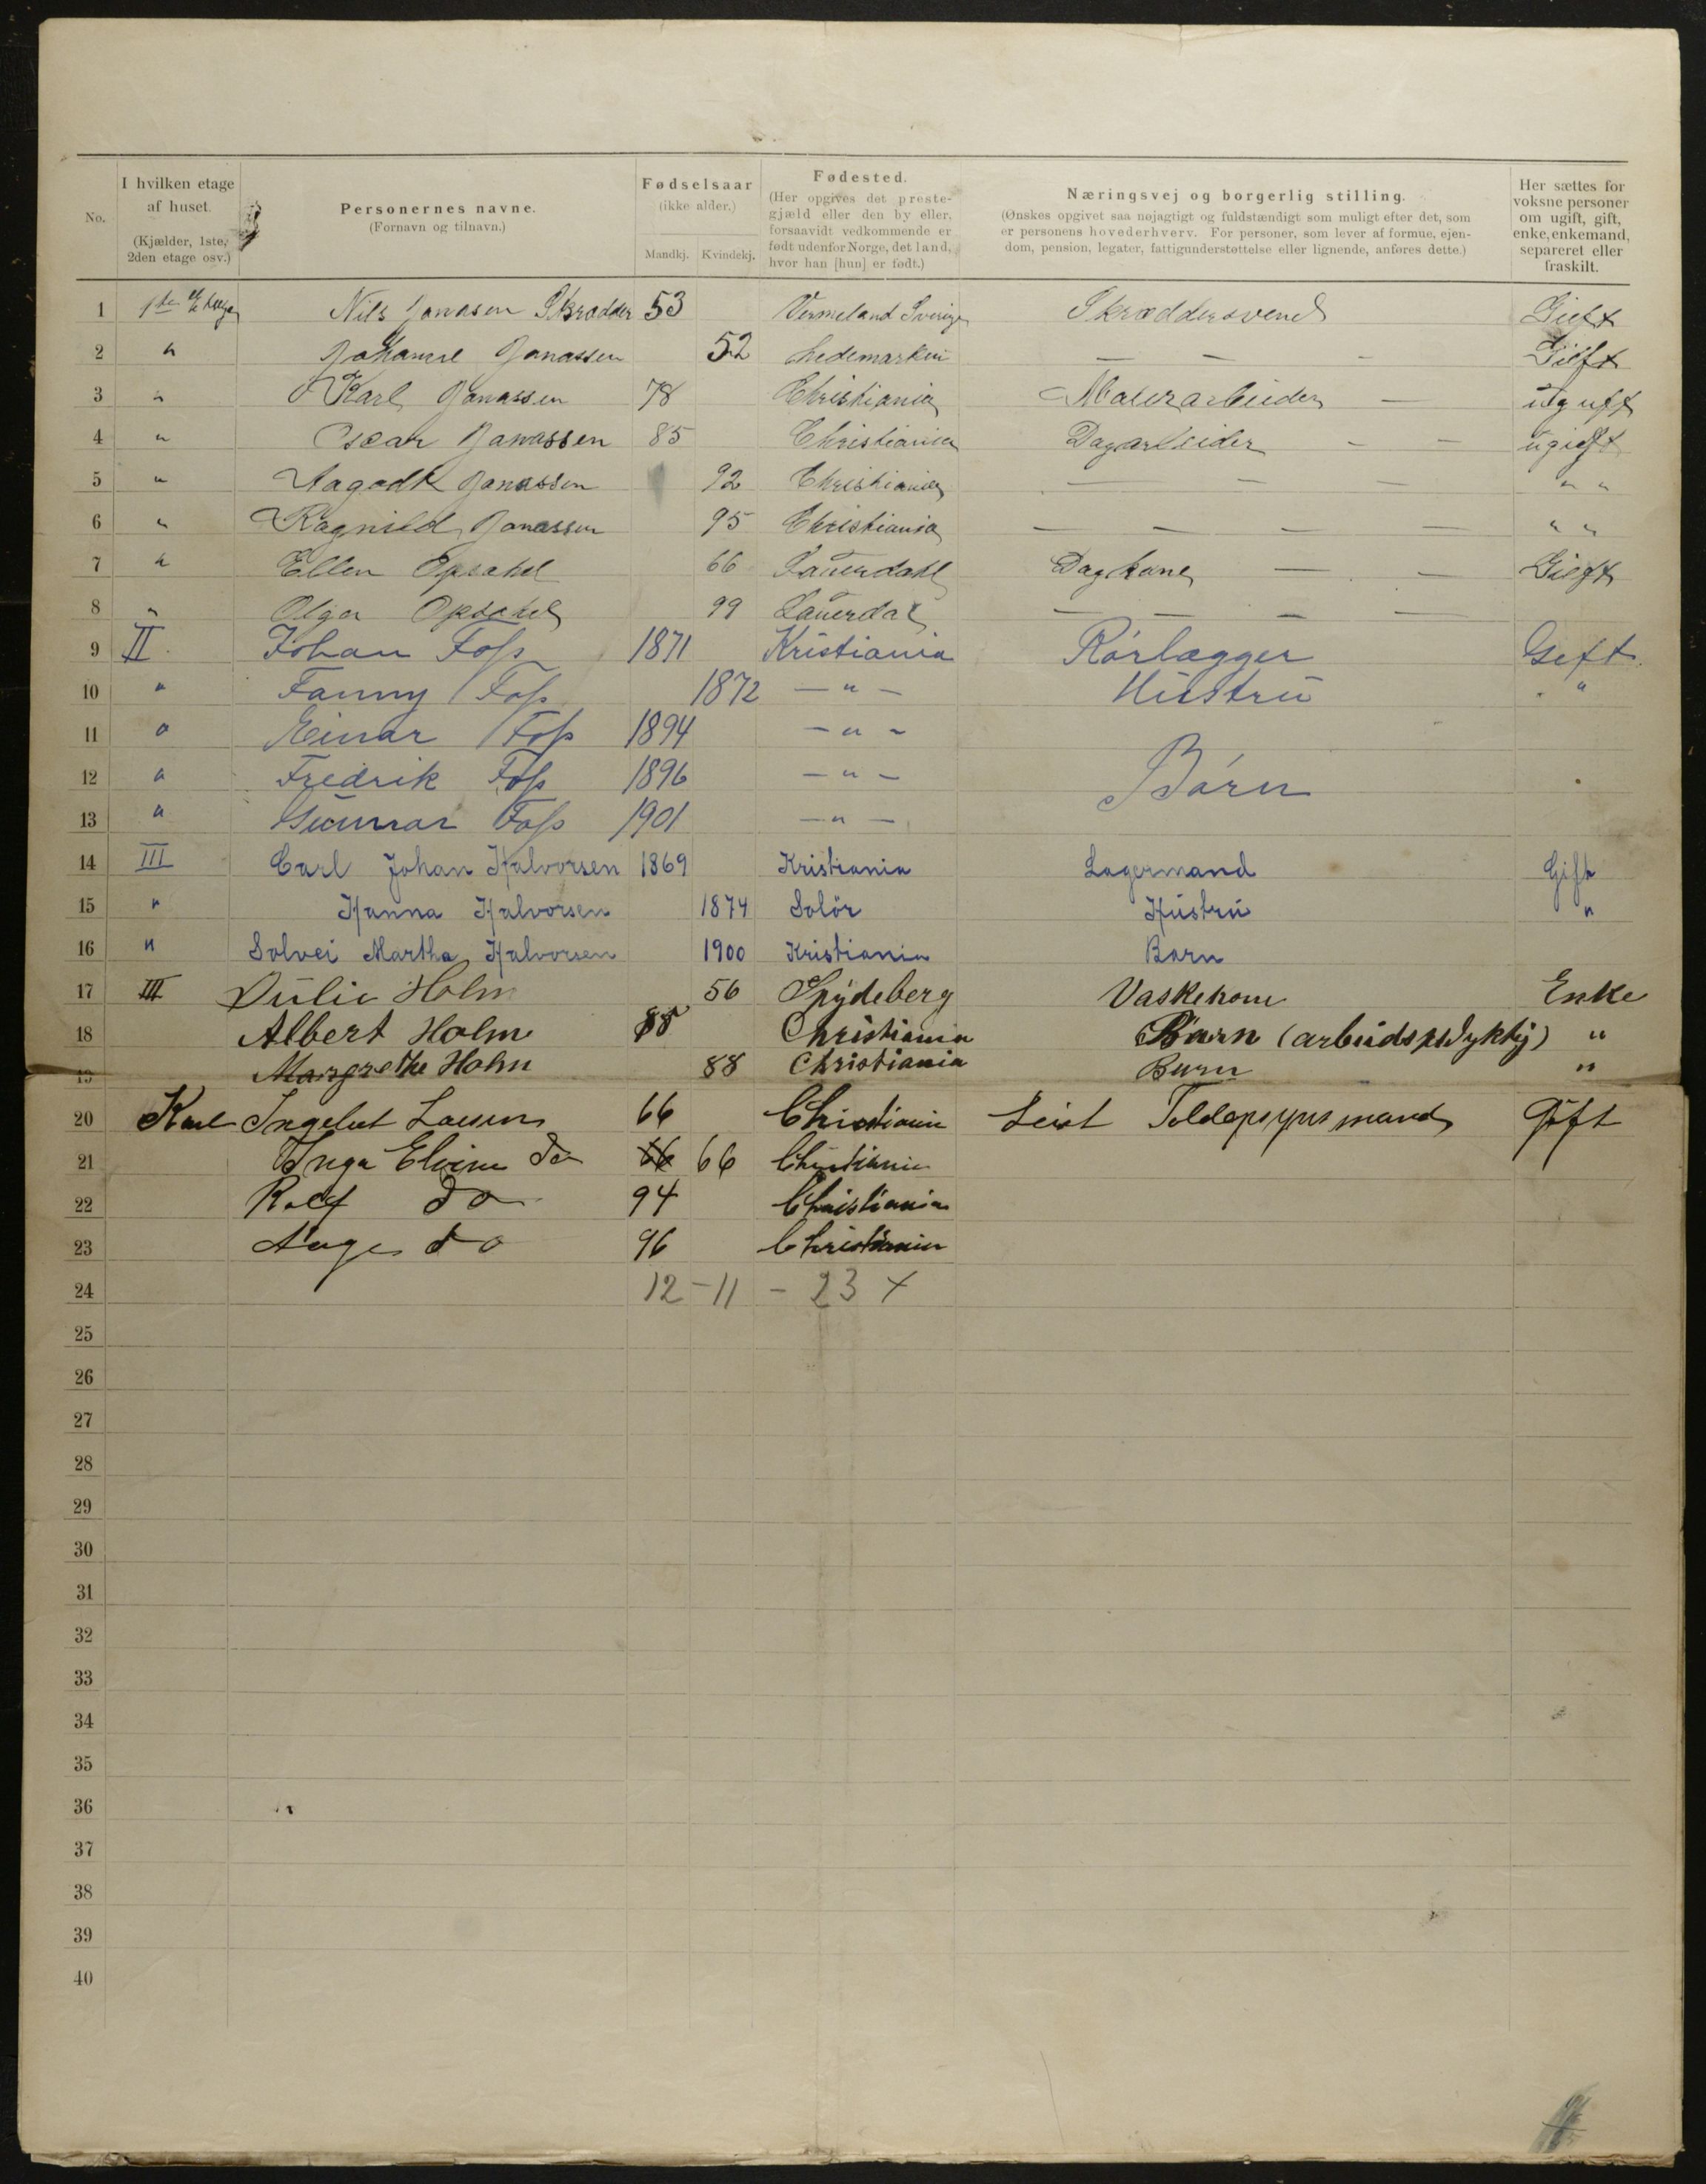 No.
I hvilken etage
af huset.
(Kjælder, 1ste,
2den etage osv.)
Personernes navne.
(Fornavn og tilnavn.)
Fødselsaar
(ikke alder.)
Mandkj. Kvindekj.
Fødested.
(Her opgives det preste-
gjæld eller den by eller,
forsaavidt vedkommende er
født udenfor Norge, det land,
hvor han [hun] er født.)
Næringsvej og borgerlig stilling.
(Ønskes opgivet saa nøjagtigt og fuldstændigt som muligt efter det, som
er personens hovederhverv. For personer, som lever af formue, ejen-
dom, pension, legater, fattigunderstøttelse eller lignende, anføres dette.)
Her sættes for
voksne personer
om ugift, gift,
enke, enkemand,
separeret eller
fraskilt.
1 1ste Etage Nils Janasen Skrædder 53 Vermeland Sverige Skræddersvend Gieft
2 " Johanne Janassen 52 hedemarken — — — Gieft
3 " Karl Janassen 78 Christiania Malerarbeider —
4 " Oscar Janassen 85 Christiania Dagarbeider - — ugieft
5 " Aagodt Janassen 92 Christiania — — — " "
6 " Ragnild Janassen 95 Christiania — — — — " "
7 " Ellen Opsahel 66 Laurdahl Dagkone — — Gieft
8 " Olga Opsahel 99 Laurdal — — — —
9 II Johan Foss 1871 Kristiania Rörlægger Geft.
10 " Fanny Foss 1872 — " — Hustru "
11 " Einar Foss 1894 — " —
12 " Fredrik Foss 1896 — " — Börn
13 " Gunnar Foss 1901 — " —
14 III Carl Johan Halvorsen 1869 Kristiania Lagermand Gift
15 " Hanna Halvorsen 1874 Solör Hustru "
16 " Solvei Martha Halvorsen 1900 Kristiania Barn
17 III Julie Holm 56 Spydeberg Vaskekone Enke
18 Albert Holm 85 Christiania Barn (arbeidsudyktig) "
19 Margrethe Holm 88 Christiania Barn "
20 Karl Ingebret Larsen 66 Christiania Leist Toldopsynsmand Gift
21 Inga Elvine do 66 66 Christiania
22 Rolf do 94 Christiania
23 Aage do 96 Christiania
24 12 – 11 – 23 +
25
26
27
28
29
30
31
32
33
34
35
36
37
38
39
40